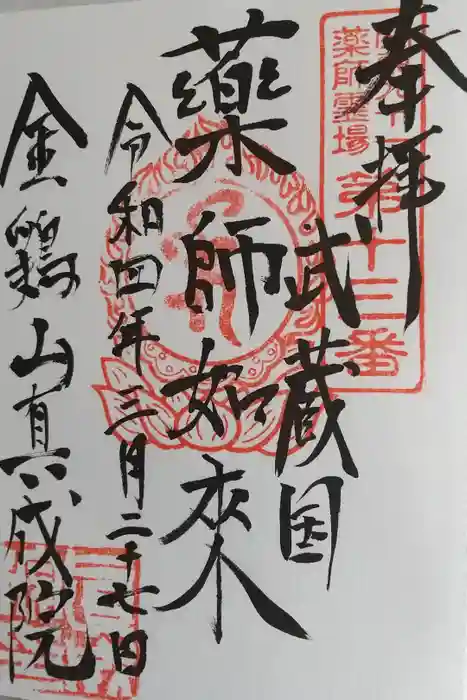 奉拝
武蔵国
薬師如来
令和四年三月二十七日
金鶏山真成院
薬師霊場
第十三番